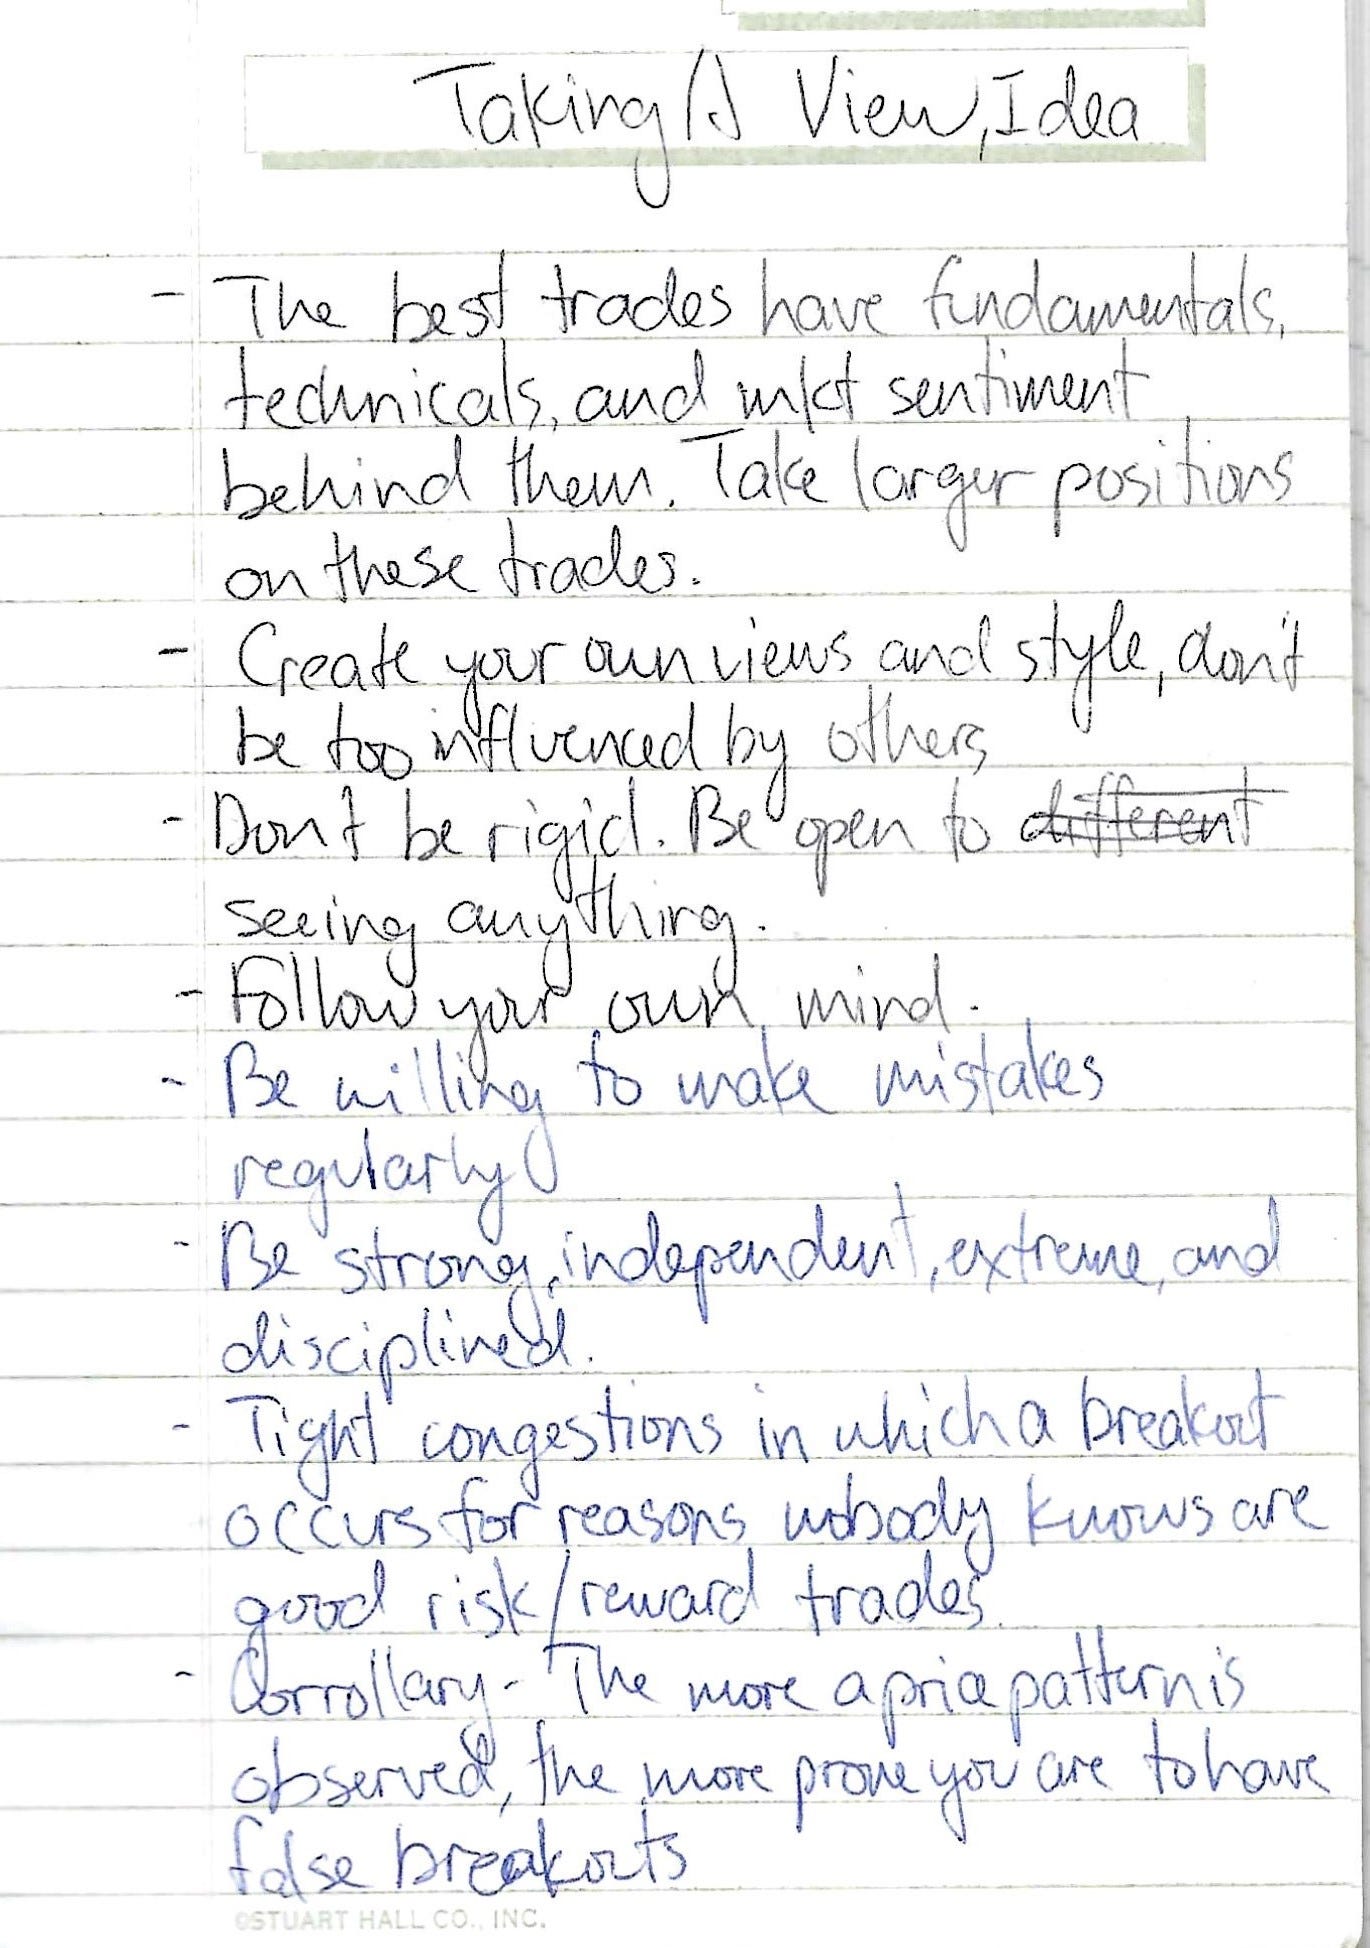 Taking A View, Idea
- The best trades have fundamentals,
technicals, and mkt sentiment
behind them. Take larger positions
on these trades.
- Create your own views and style, don't
be too influenced by others
- Don't be rigid. Be open to different
seeing anything.
- Follow your own mind.
- Be willing to make mistakes
regularly
- Be strong, independent, extreme, and
disciplined.
- Tight congestions in which a breakout
occurs for reasons nobody knows are
good risk/reward trades.
- Corrollary - The more a price pattern is
observed, the more prone you are to have
false breakouts
©STUART HALL CO., INC.